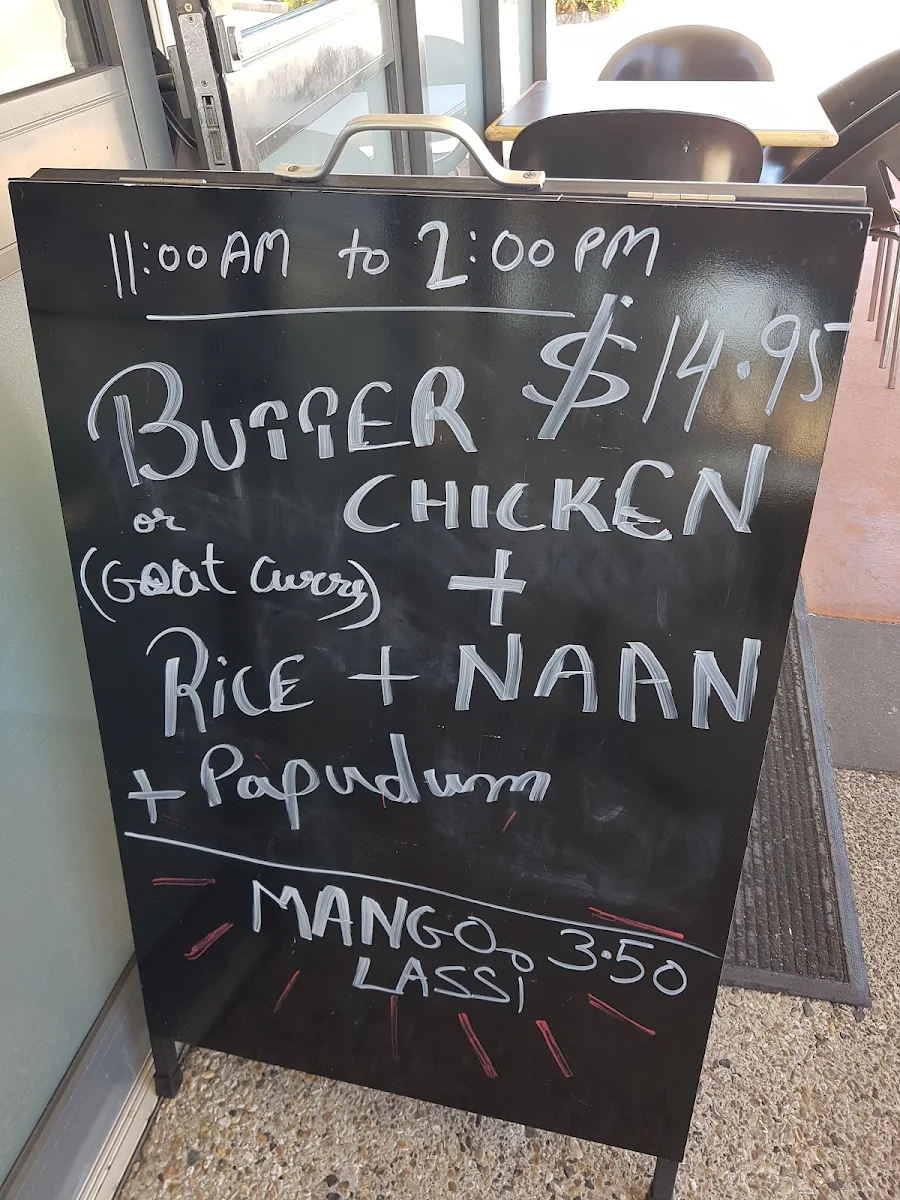 11:00 AM to 2:00 PM
$14.95
BUTTER
CHICKEN
or
(Goat Curry) +
RICE + NAAN
+ Papudum
MANGO 3.50
LASSI